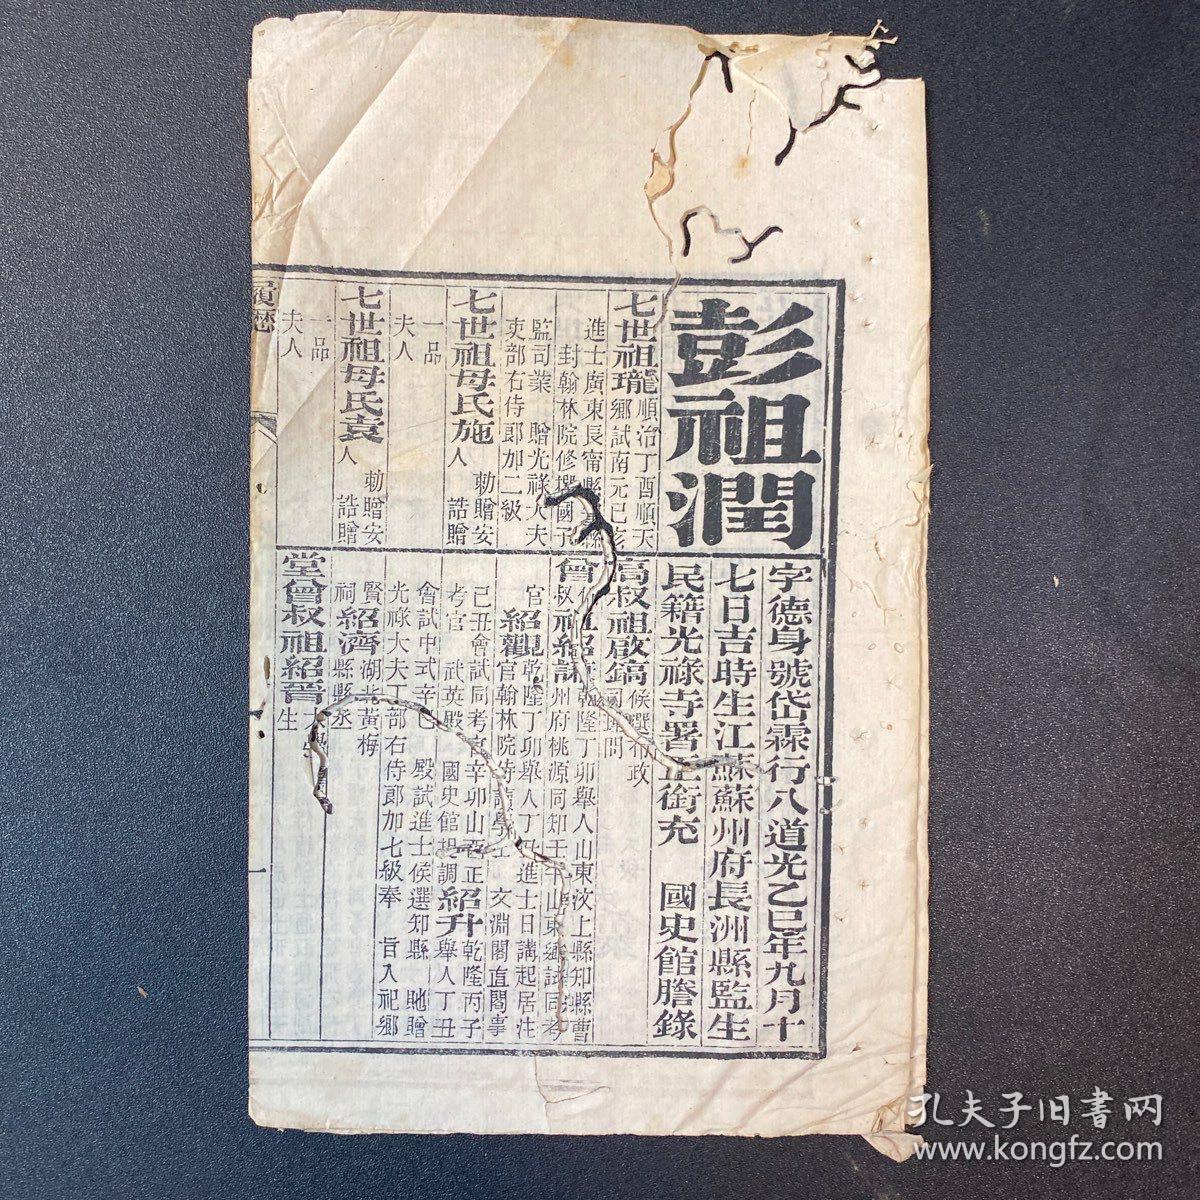 彭祖潤
字德身號岱霖行八道光乙巳年九月十
七日吉時生江蘇蘇州府長洲縣監生
民籍光祿寺署正銜充 國史館謄錄
七世祖瓏順治丁酉順天
鄉試南元己亥
進士廣東長甯縣知縣
封翰林院修撰國子
監司業 贈光祿大夫
吏部右侍郎加二級
七世祖母氏施 勅贈安
人 誥贈
一品
夫人
七世祖母氏袁 勅贈安
人 誥贈
一品
夫人
高叔祖啟鎬候選布政
司理問
曾叔祖紹謙乾隆丁卯舉人山東汶上縣知縣曹
州府桃源同知壬午山東鄉試同考
官 紹觀乾隆丁卯舉人丁丑進士日講起居注
官翰林院侍讀學士 文淵閣直閣事
己丑會試同考官辛卯山西正
考官 武英殿 國史館提調紹升乾隆丙子
舉人丁丑
會試中式辛巳 殿試進士候選知縣 貤贈
光祿大夫工部右侍郎加七級奉 旨入祀鄉
賢 紹濟湖北黃梅
祠 縣縣丞
堂曾叔祖紹晉
生
履歷
一
孔夫子旧書网
www.kongfz.com